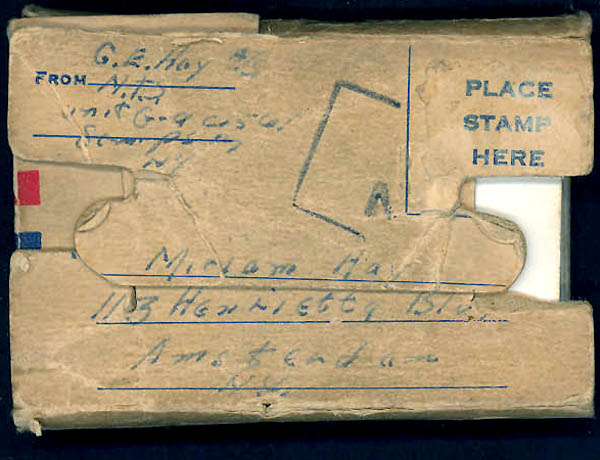 G. E. Hay S3
FROM N.T.S
Unit G-
Sampson
NY
PLACE
STAMP
HERE
A
Miriam Hay
113 Henrietta Blvd
Amsterdam
N.Y.